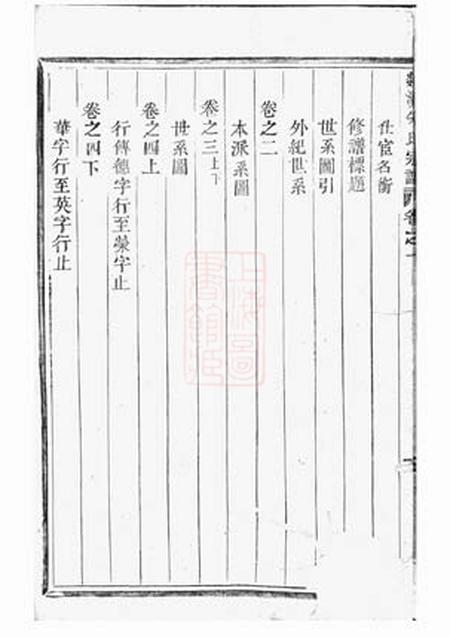 仕宦名銜
修譜標題
世系圖引
外紀世系
卷之二
本派系圖
卷之三上下
世系圖
卷之四上
行傳德字行至榮字止
卷之四下
華字行至英字行止
上海圖書館藏